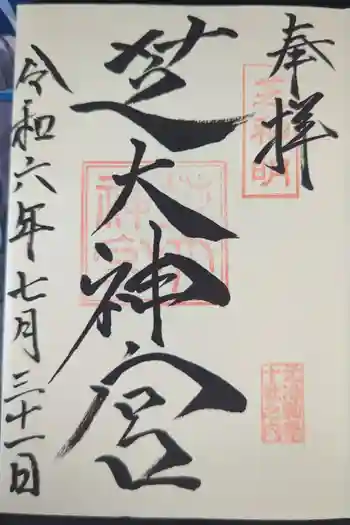 奉拝
芝神明
芝大神宮
令和六年七月三十一日